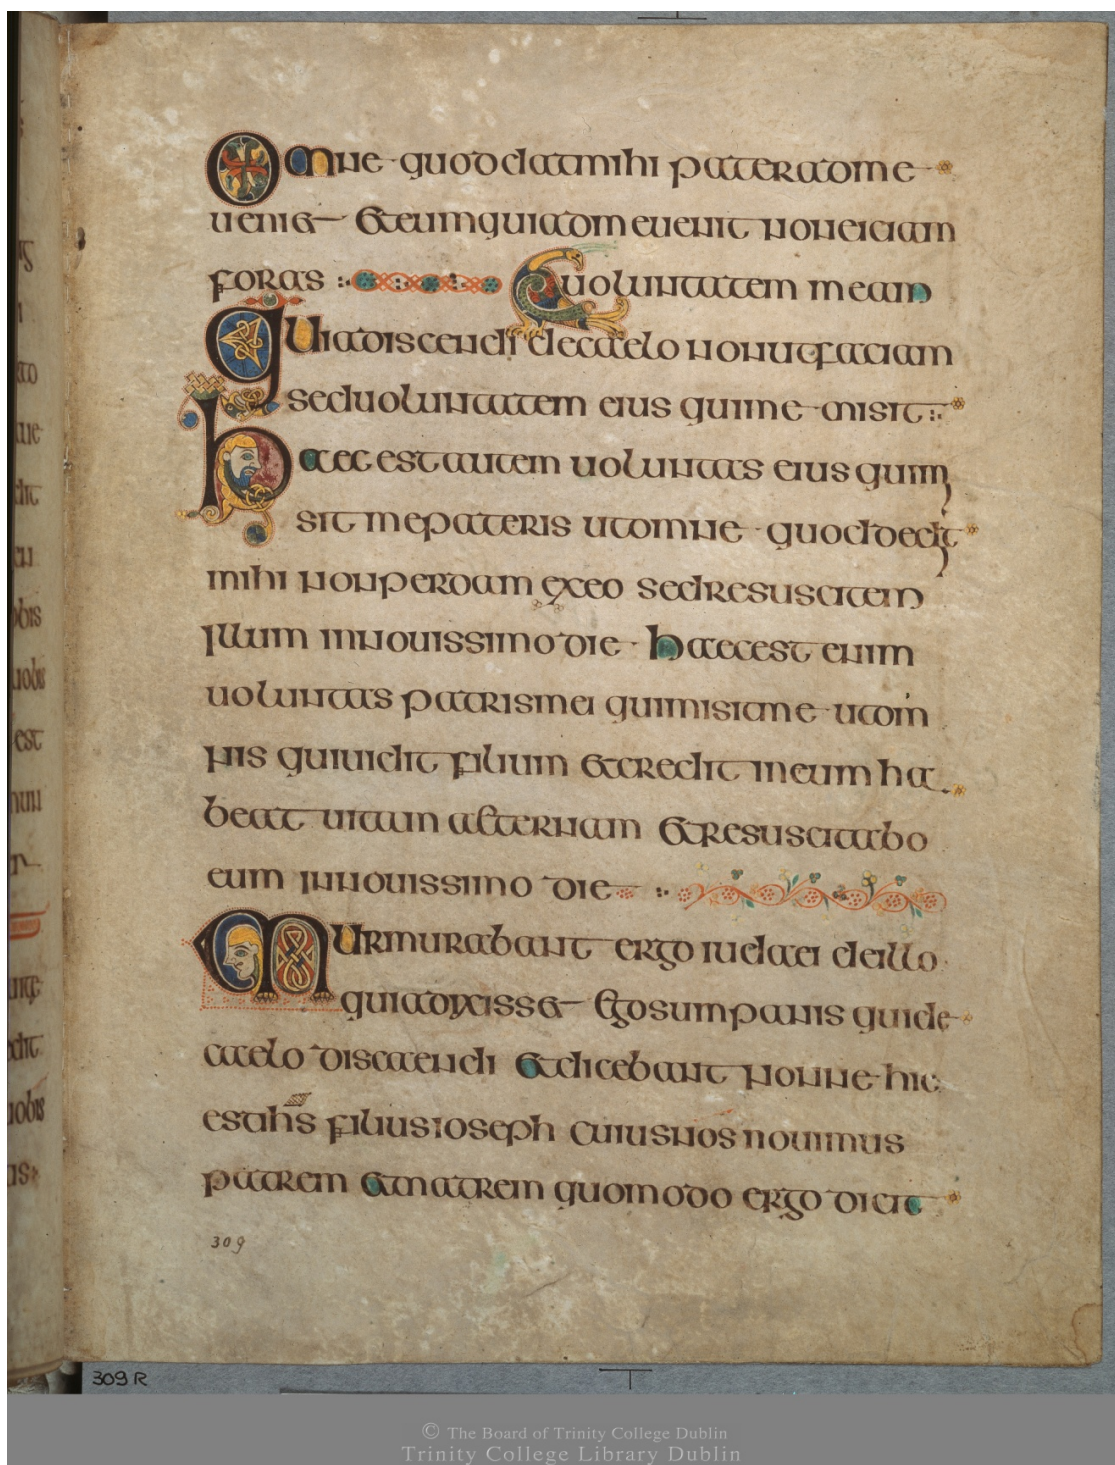 Omne quod dat mihi pater ad me
ueniet et eum qui ad me uenit non eiciam
foras
uoluntatem meam
Quia discendi de caelo non ut faciam
sed uoluntatem eius qui me misit
Haec est autem uoluntas eius qui mi
sit me pateris ut omne quod dedit
mihi non perdam ex eo sed resuscitem
illum in nouissimo die haec est enim
uoluntas patris mei qui misit me ut om
nis qui uidit filium et credit in eum ha
beat uitam aeternam et resuscitabo
eum in nouissimo die
Murmurabant ergo iudaei de illo
quia dixisset ego sum panis qui de
caelo discendi et dicebant nonne hic
est ihs filius ioseph cuius nos nouimus
patrem et matrem quomodo ergo dicit
309
309 R
© The Board of Trinity College Dublin
Trinity College Library Dublin